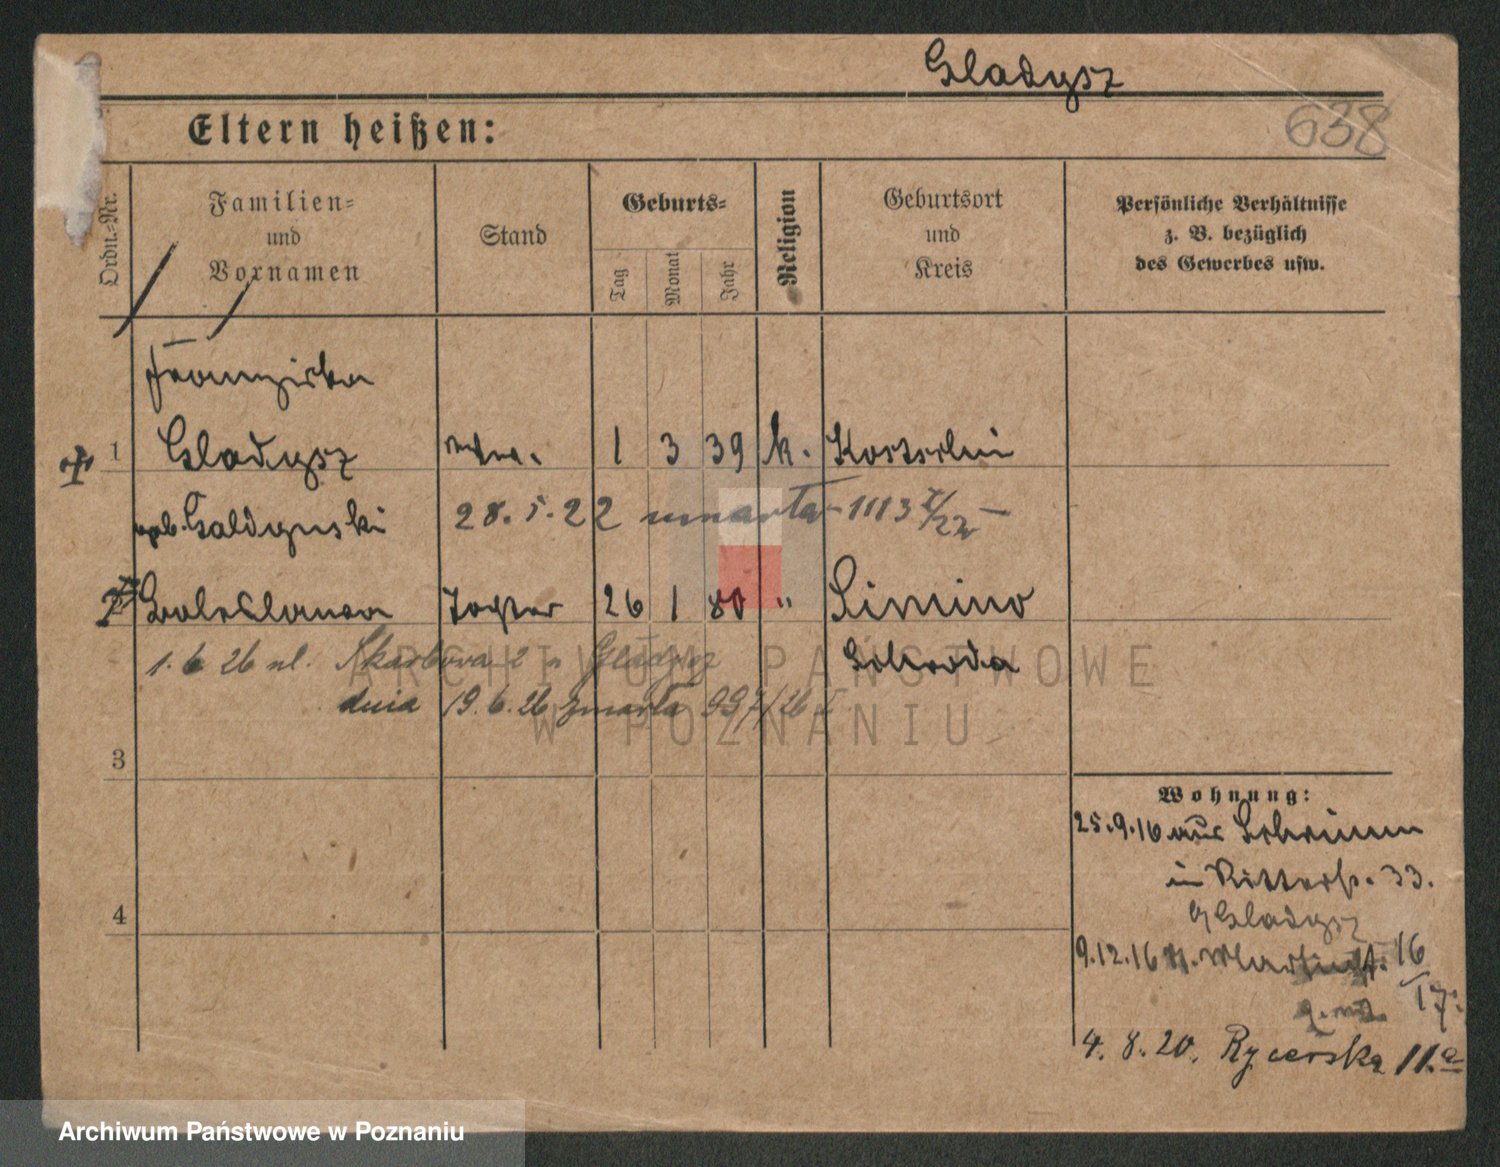 Gladysz
638
Eltern heißen:
Ordn.-Nr.
Familien-
und
Vornamen
Stand
Geburts-
Tag
Monat
Jahr
Religion
Geburtsort
und
Kreis
Persönliche Verhältnisse
z. B. bezüglich
des Gewerbes usw.
Franziska
1 Gladysz Wwe. 1 3 39 k. Kostschin
geb. Galdynski 28. 5. 22 umarła 1113 /22
Boleslawa Tochter 26 1 80 " Simino
1. 6 26 ul. Skarbowa 2 Gladysz Schroda
dnia 19. 6. 26 zmarła 997/26 I
3
4
Wohnung:
25.9.16 aus Schrimm
in Ritterst. 33.
Gladysz
9.12.16 St. Martinst. 16
/17.
4. 8. 20. Rycerska 11.a
ARCHIWUM PAŃSTWOWE
W POZNANIU
Archiwum Państwowe w Poznaniu